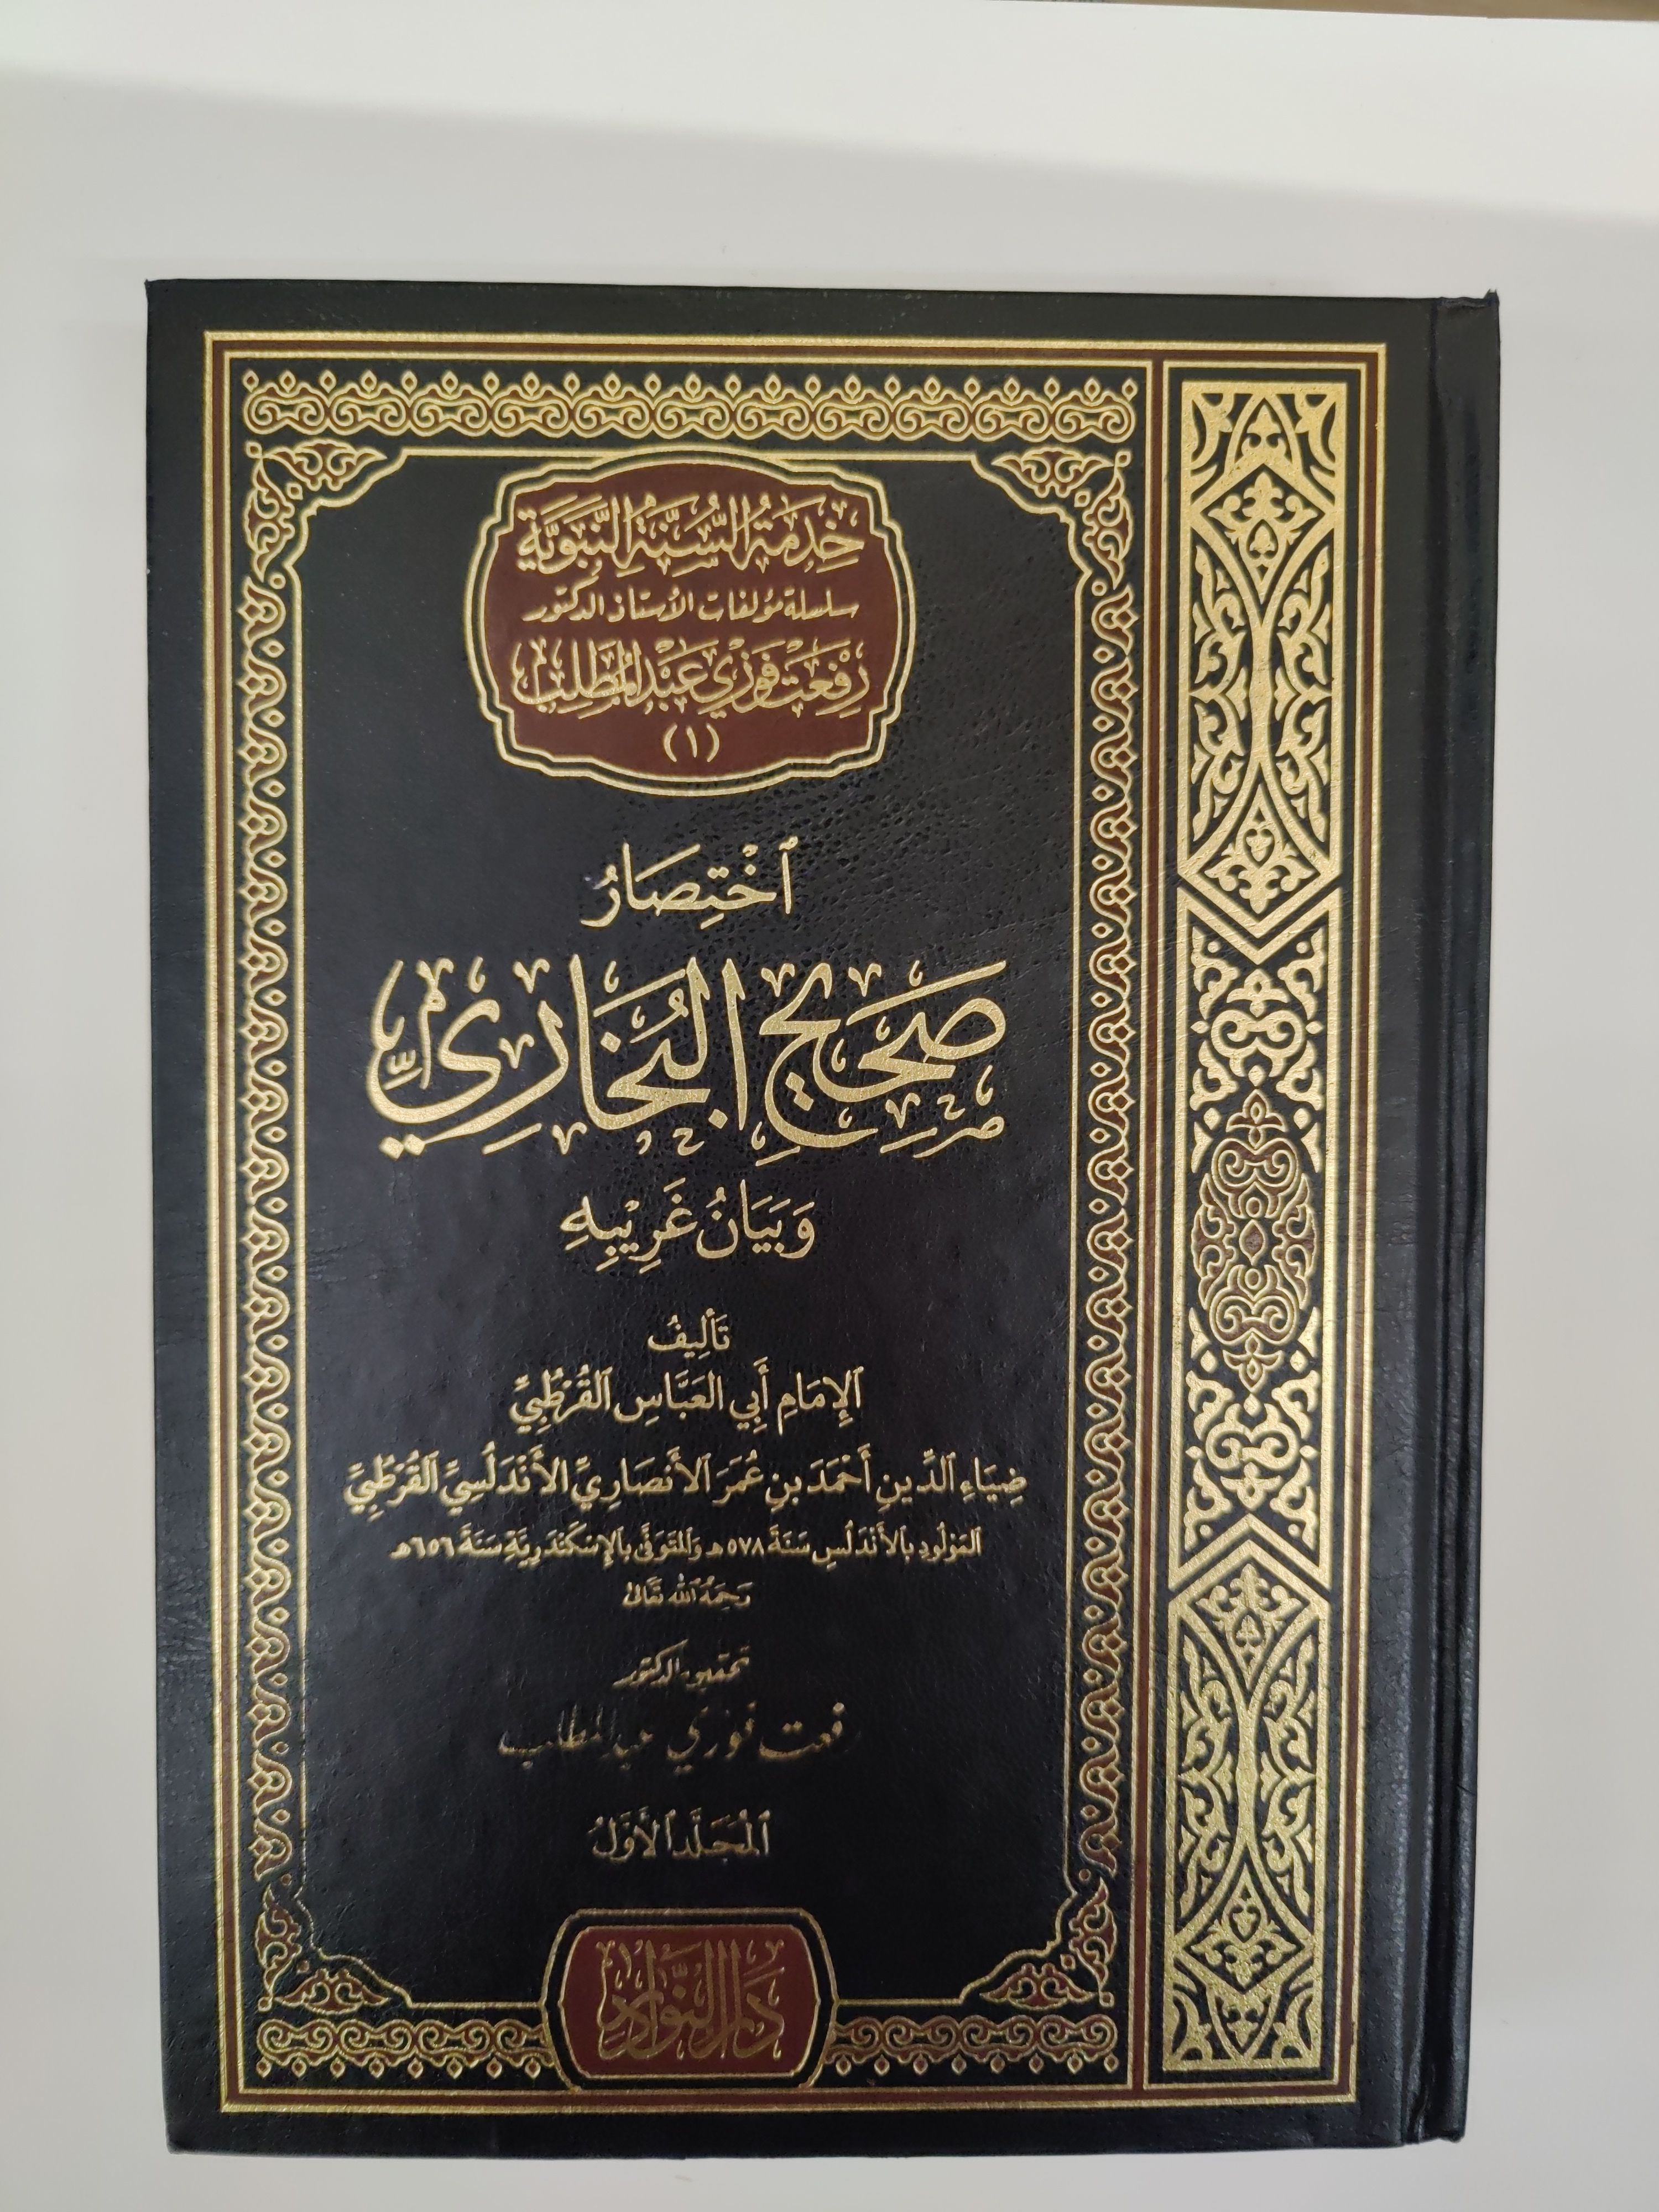 خِدْمَةُ السُّنَّةِ النَّبَوِيَّةِ
سلسلة مؤلفات الأستاذ الدكتور
رِفْعَتْ فَوْزِي عَبْدُ المُطَّلِبِ
(١)
ٱخْتِصَارُ
صَحِيحِ البُخَارِيِّ
وَبَيَانُ غَرِيْبِهِ
تَأْلِيفُ
ٱلإِمَامِ أَبِي العَبَّاسِ ٱلقُرْطُبِيِّ
ضِيَاءِ ٱلدِّينِ أَحْمَدَ بنِ عُمَرَ ٱلأَنصَارِيِّ الأَنْدَلُسِيِّ ٱلقُرْطُبِيِّ
المَوْلُودِ بِالأَنْدَلُسِ سَنَةَ ٥٧٨هـ وَالمُتَوَفَّى بِالإِسْكَنْدَرِيَّةِ سَنَةَ ٦٥٦هـ
رَحِمَهُ ٱللَّه تَعَالَىٰ
تحقيق الدكتور
رفعت فوزي عبد المطلب
المُجَلَّد ٱلأَوَّلُ
دار النوادر